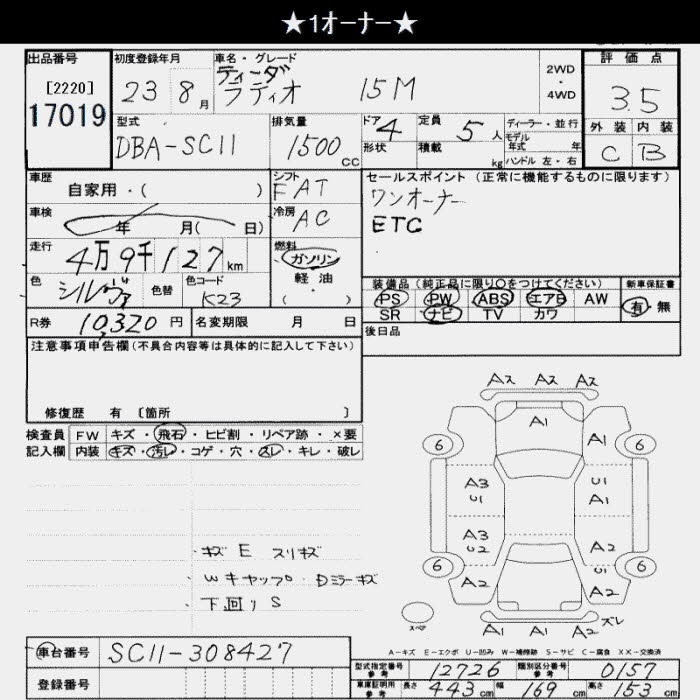 ★1オーナー★
出品番号 初度登録年月 車名・グレード 評価点
[2220] 23 8月 ティーダ ラティオ 15M 2WD・4WD 3.5
17019
型式 排気量 ドア 4 定員 5人 ディーラー・並行 外装 内装
DBA-SC11 1500cc 形状 積載 kg モデル年式 年 C B
ハンドル 左・右
車歴 シフト セールスポイント (正常に機能するものに限ります)
自家用・( ) FAT ワンオーナー
車検 年 月( 日) 冷房 AC ETC
走行 4万9千127km 燃料 ガソリン
軽油
・( )
色 シルヴァ 色替 色コード K23
装備品 (純正品に限り○をつけてください) 新車保証書
PS PW ABS エアB AW 有・無
SR ナビ TV カワ
R券 10,320円 名変期限 月 日 後日品
注意事項申告欄(不具合内容等は具体的に記入して下さい)
修復歴 有 〔箇所 〕
検査員 FW キズ・飛石・ヒビ割・リペア跡・×要
記入欄 内装 キズ・汚レ・コゲ・穴・スレ・キレ・破レ
A2 A2 A2
A1
6 A1 6
A3 U1
U1 A1
A3 A2
U2
6 U1 6
A2 A2
スペア A1 A1 A2 ズレ
・キズ E スリキズ
・Wキャップ・Dミラーキズ
・下回りS
A-キズ E-エクボ U-凹み W-補修跡 S-サビ C-腐食 XX-交換済
車台番号 SC11-308427
登録番号
型式指定番号 参考 12726 類別区分番号 参考 0157
車庫証明用 参考 長さ 443cm 幅 169cm 高さ 153cm